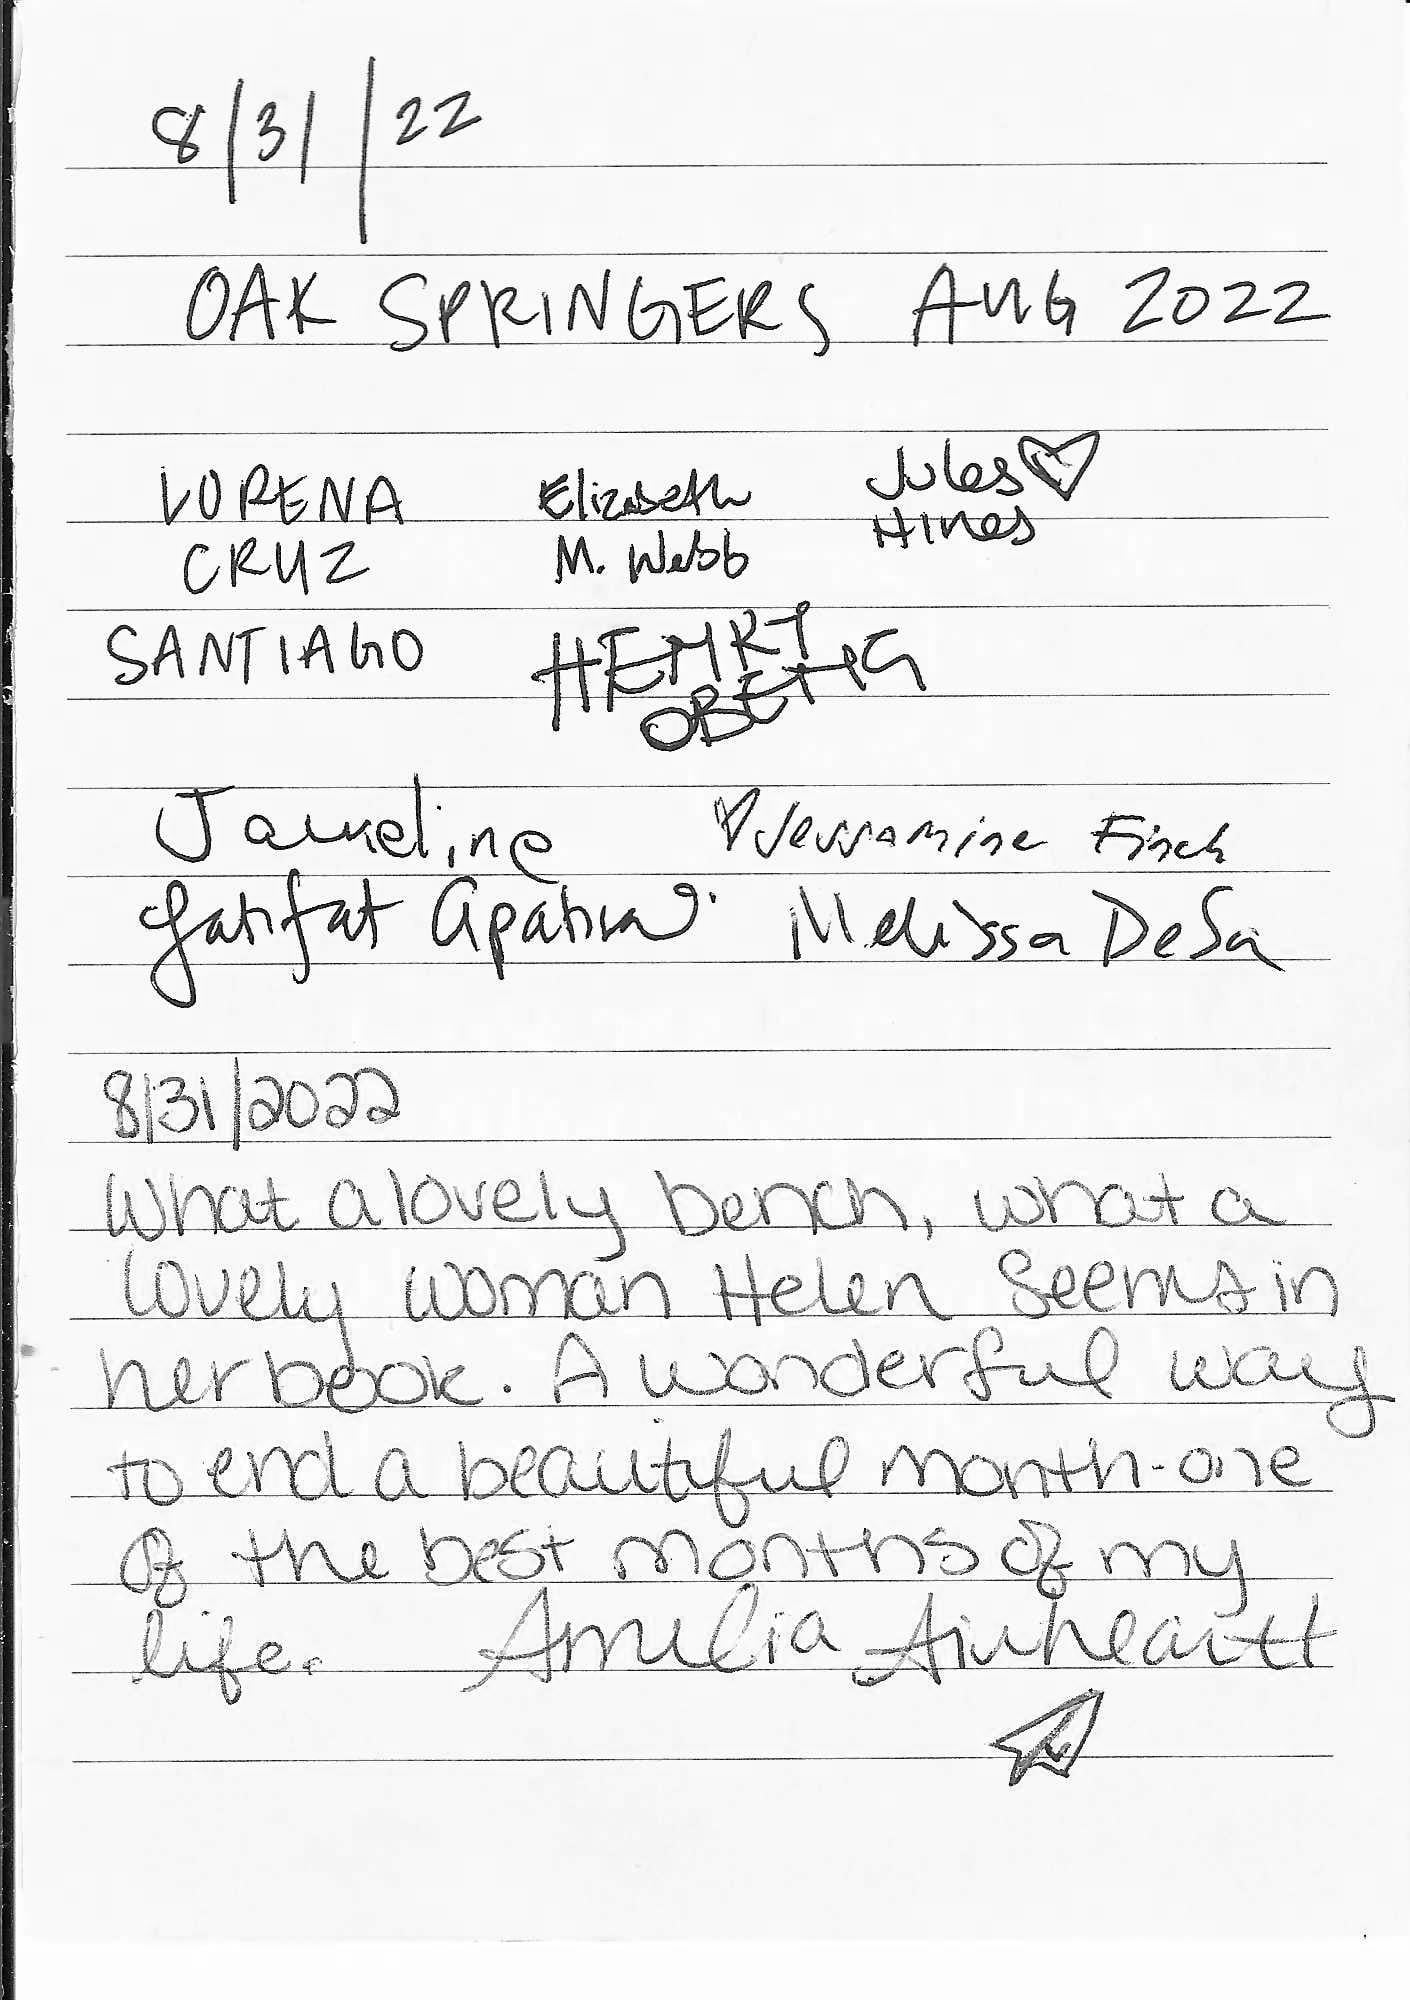 8/31/22
OAK SPRINGERS AUG 2022
LORENA Elizabeth Jules
CRUZ M. Webb Hines
SANTIAGO HEMRY
OBENG
Jauneline ♡ Jessamine Finch
Latifat Apatira Melissa DeSa
8/31/2022
What a lovely bench, what a
lovely woman Helen seems in
her book. A wonderful way
to end a beautiful month-one
of the best months of my
life. Amelia Airheartt